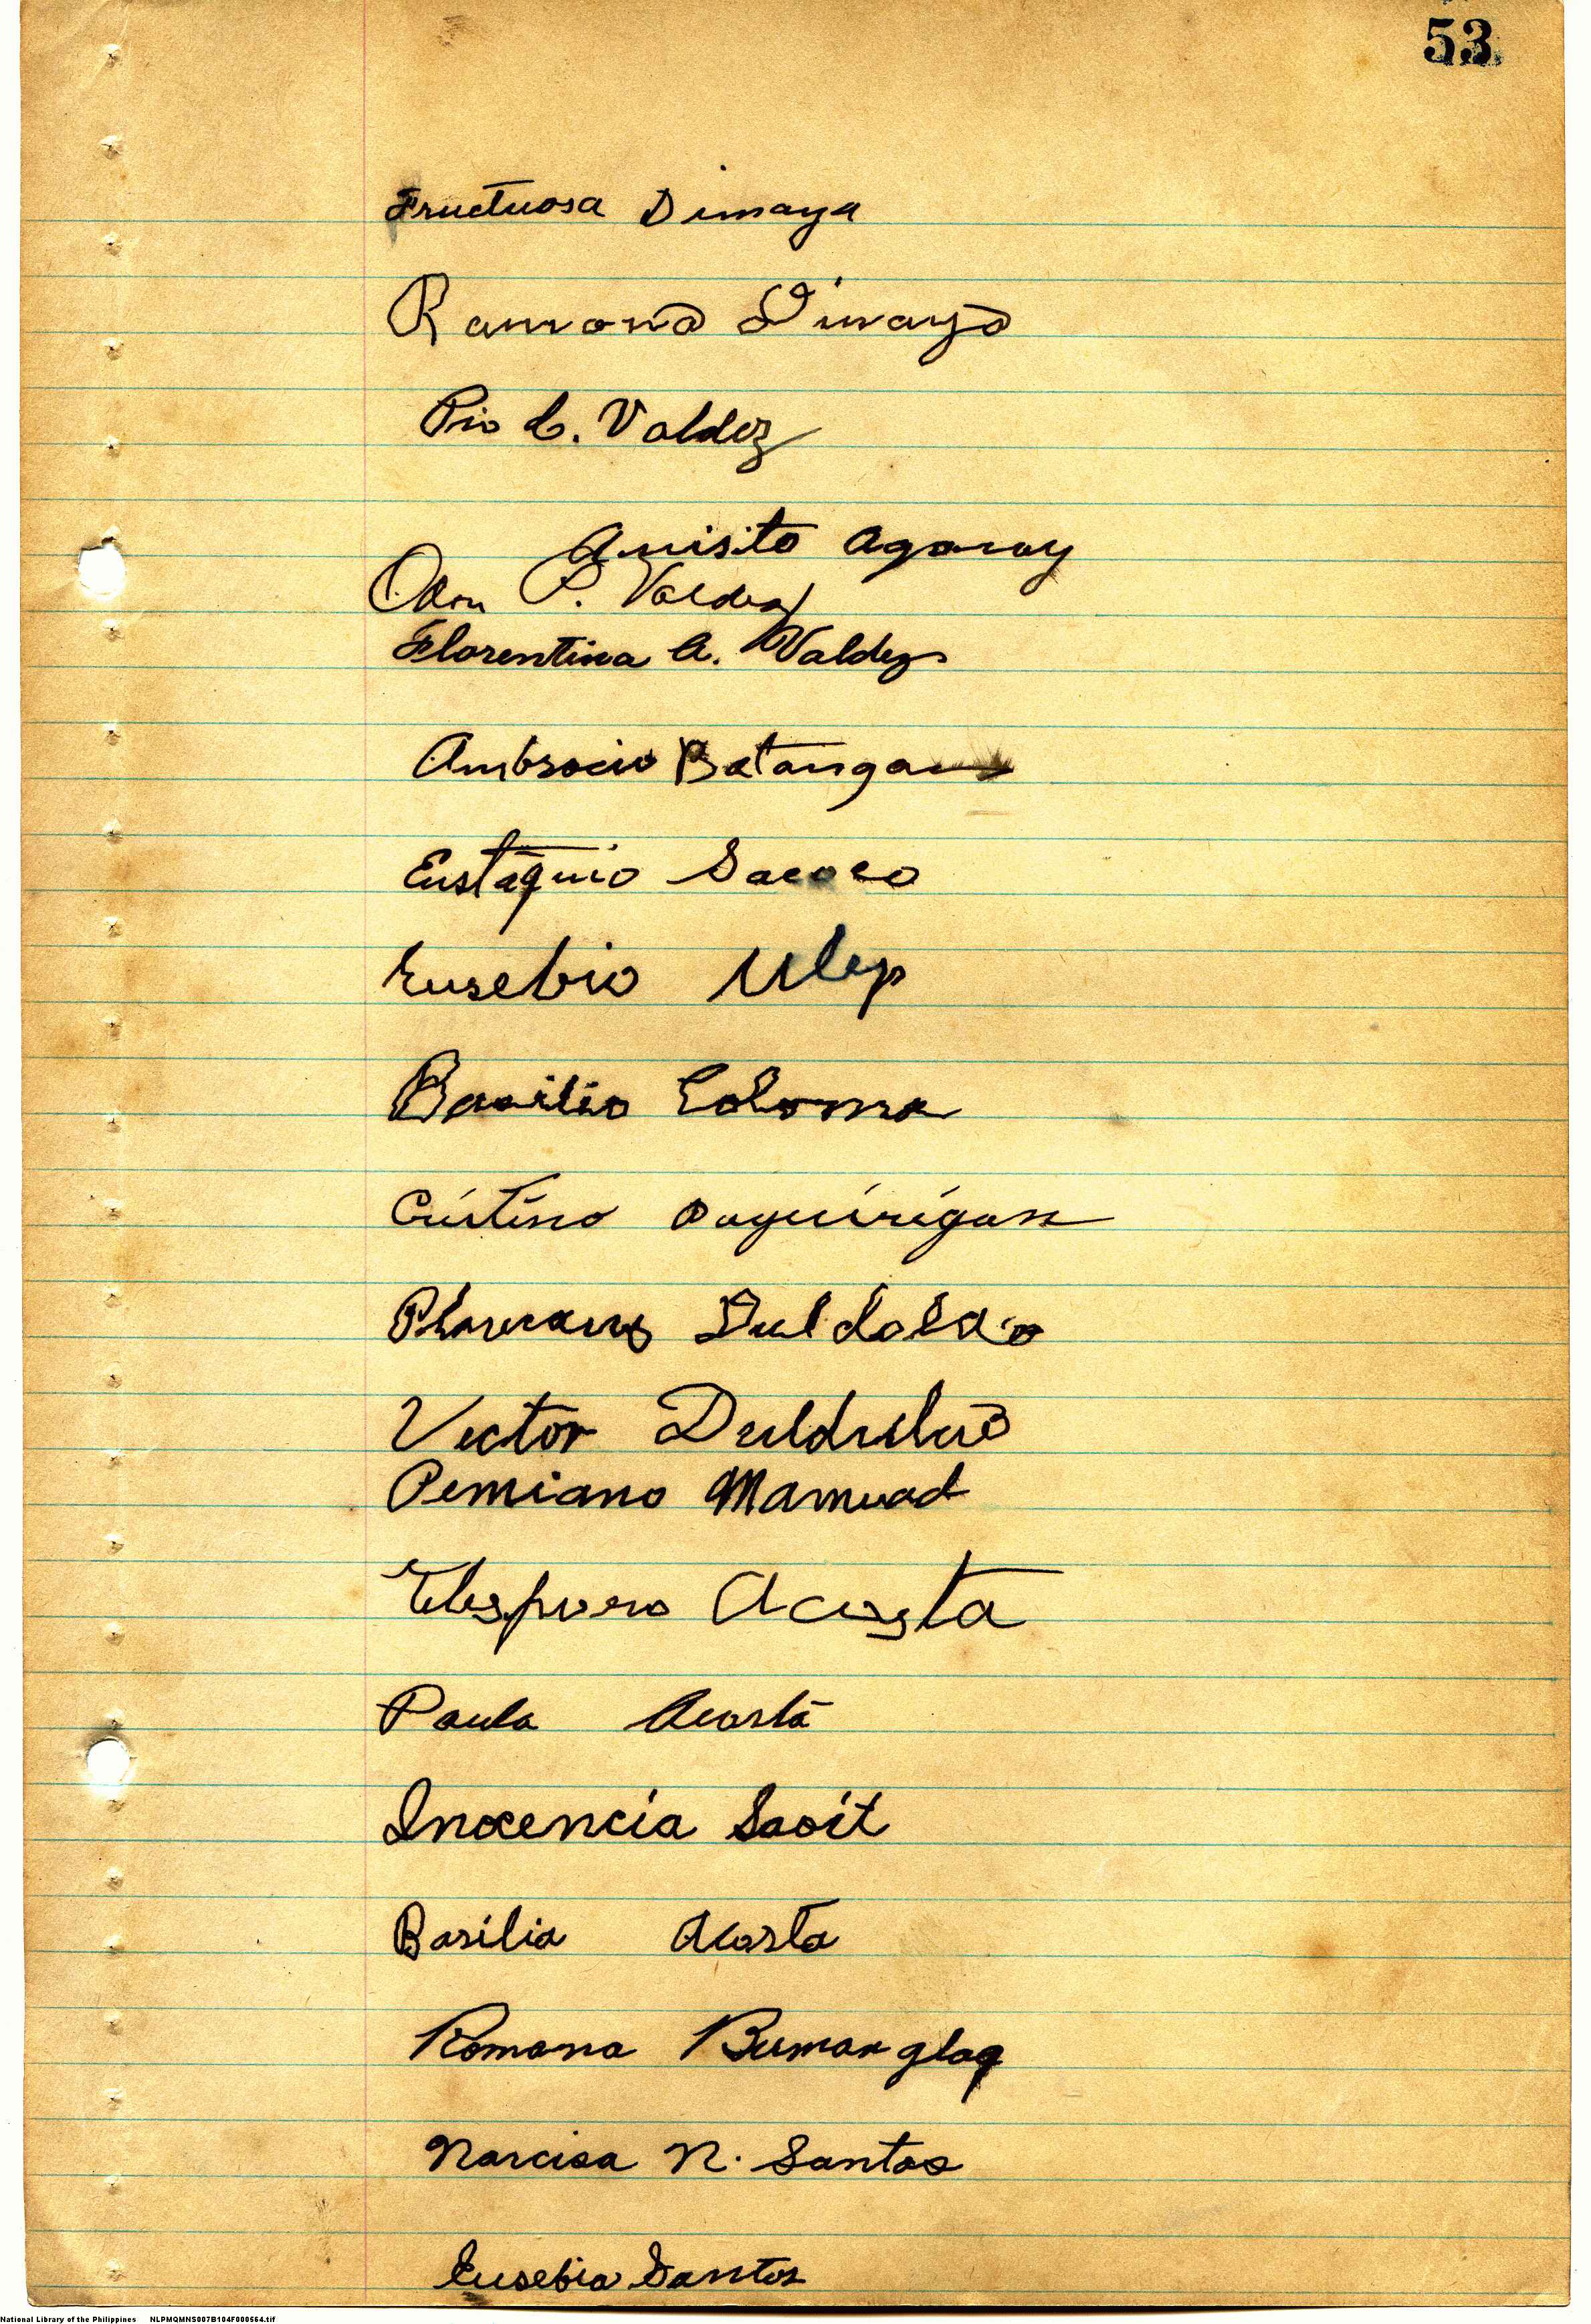 53
Fructuosa Dimaya
Ramona Dimaya
Pio C. Valdez
Anisito Agaray
Odon P. Valdez
Florentina A. Valdez
Ambrocio Batangan
Eustaquio Sacoco
Eusebio Ulep
Basilio Coloma
Cristino Daquirigan
Duldulao
Victor Duldulao
Pemiano Mamuad
Telesporo Acosta
Paula Acosta
Inocencia Saoit
Basilia Acosta
Romana Bumanglag
Narcisa N. Santos
Eusebia Santos
National Library of the Philippines NLPMQMNS007B104F000564.tif